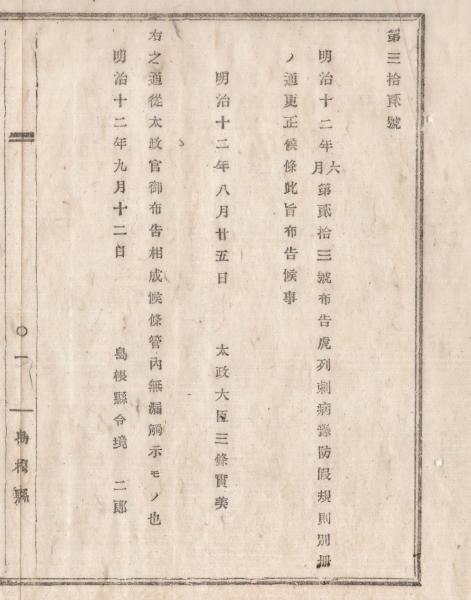 第三拾貳號
明治十二年六月第貳拾三號布告虎列刺病豫防假規則別冊
ノ通更正候條此旨布告候事
明治十二年八月廿五日　太政大臣三條實美
右之通從太政官御布告相成候條管內無漏觸示モノ也
明治十二年九月十二日　島根縣令境　二郎
〇一　島根縣